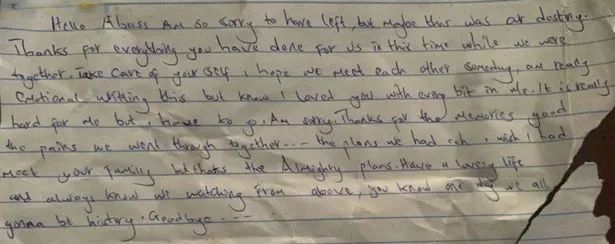 Hello Abass Am so sorry to have left, but maybe this was ar destiny.
Thanks for everything you have done for us in this time while we were
together. Take care of your self, i hope we meet each other someday, am really
Emotional writting this but know I loved you with every bit in me. It is really
hard for me but i have to go. Am sorry. Thanks for the memories good
the pains we went through together.... the plans we had och i wish I had
meet your family but thats the Almighty plans. Have a lovely life
and always know we watching from above, you know one day we all
gonna be histry. Goodbye....